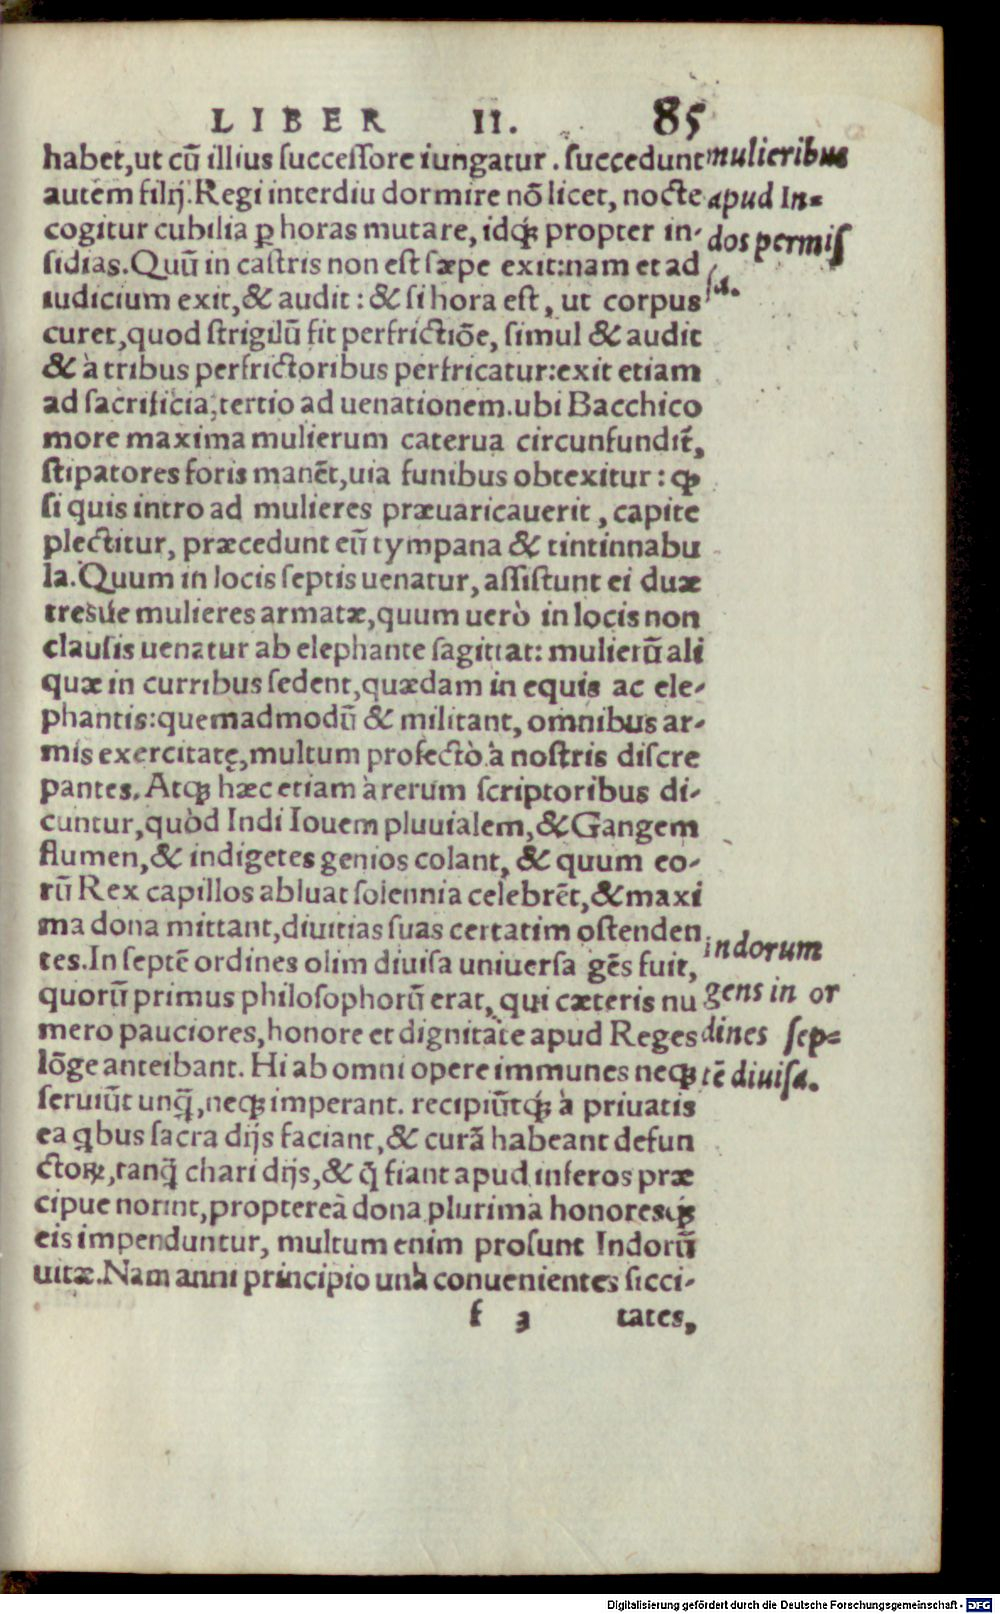 LIBER II. 85
habet,ut cū illius ſucceſſore iungatur. ſuccedunt
autem filij. Regi interdiu dormire nō licet, nocte
cogitur cubilia ꝑ horas mutare, idq́ꝫ propter in-
ſidias. Quū in caſtris non eſt ſæpe exit: nam et ad
iudicium exit, & audit: & ſi hora eſt, ut corpus
curet, quod ſtrigilū fit perfrictiōe, ſimul & audit
& à tribus perfrictoribus perfricatur: exit etiam
ad ſacrificia, tertio ad uenationem. ubi Bacchico
more maxima mulierum caterua circunfundit̃,
ſtipatores foris manēt, uia funibus obtexitur: ꝙ
ſi quis intro ad mulieres præuaricauerit, capite
plectitur, præcedunt eū tympana & tintinnabu
la. Quum in locis ſeptis uenatur, aſſiſtunt ei duæ
tresúe mulieres armatæ, quum uerò in locis non
clauſis uenatur ab elephante ſagittat: mulierū ali
quæ in curribus ſedent, quædam in equis ac ele-
phantis: quemadmodū & militant, omnibus ar-
mis exercitatę, multum profectò à noſtris diſcre
pantes. Atqꝫ hæc etiam à rerum ſcriptoribus di-
cuntur, quòd Indi Iouem pluuialem, & Gangem
flumen, & indigetes genios colant, & quum eo-
rū Rex capillos abluat ſolennia celebrēt, & maxi
ma dona mittant, diuitias ſuas certatim oſtenden
tes. In ſeptē ordines olim diuiſa uniuerſa gēs fuit,
quorū primus philoſophorū erat, qui cæteris nu
mero pauciores, honore et dignitate apud Reges
lōge anteibant. Hi ab omni opere immunes neqꝫ
ſeruiūt unq̃, neqꝫ imperant. recipiūtq́ꝫ à priuatis
ea qbus ſacra dijs faciant, & curā habeant defun
ctoꝝ, tanq̃ chari dijs, & q̄ fiant apud inferos præ
cipue norint, propterea dona plurima honoresq́ꝫ
eis impenduntur, multum enim proſunt Indorū
uitæ. Nam anni principio unà conuenientes ſicci-
f 3 tates,
mulieribus
apud In=
dos permiſ
ſa.
indorum
gens in or
dines ſep=
tē diuiſa.
Digitalisierung gefördert durch die Deutsche Forschungsgemeinschaft - DFG